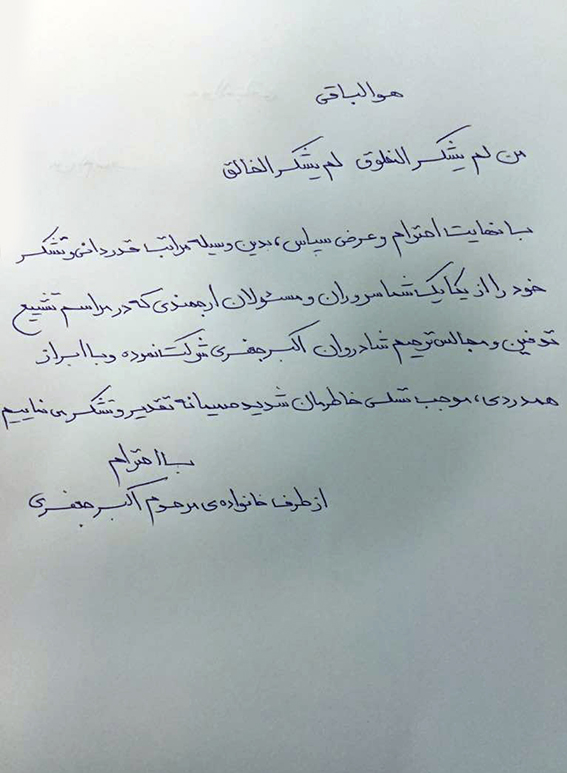 هوالباقی
من لم یشکر المخلوق لم یشکر الخالق
با نهایت احترام و عرض سپاس، بدین وسیله مراتب قدردانی و تشکر
خود را از یکایک شما سروران و مسئولان ارجمندی که در مراسم تشییع
تدفین و مجالس ترحیم شادروان اکبر جعفری شرکت نموده و با ابراز
همدردی، موجب تسلی خاطرمان شدید صمیمانه تقدیر و تشکر می نماییم
با احترام
از طرف خانواده ی مرحوم اکبر جعفری